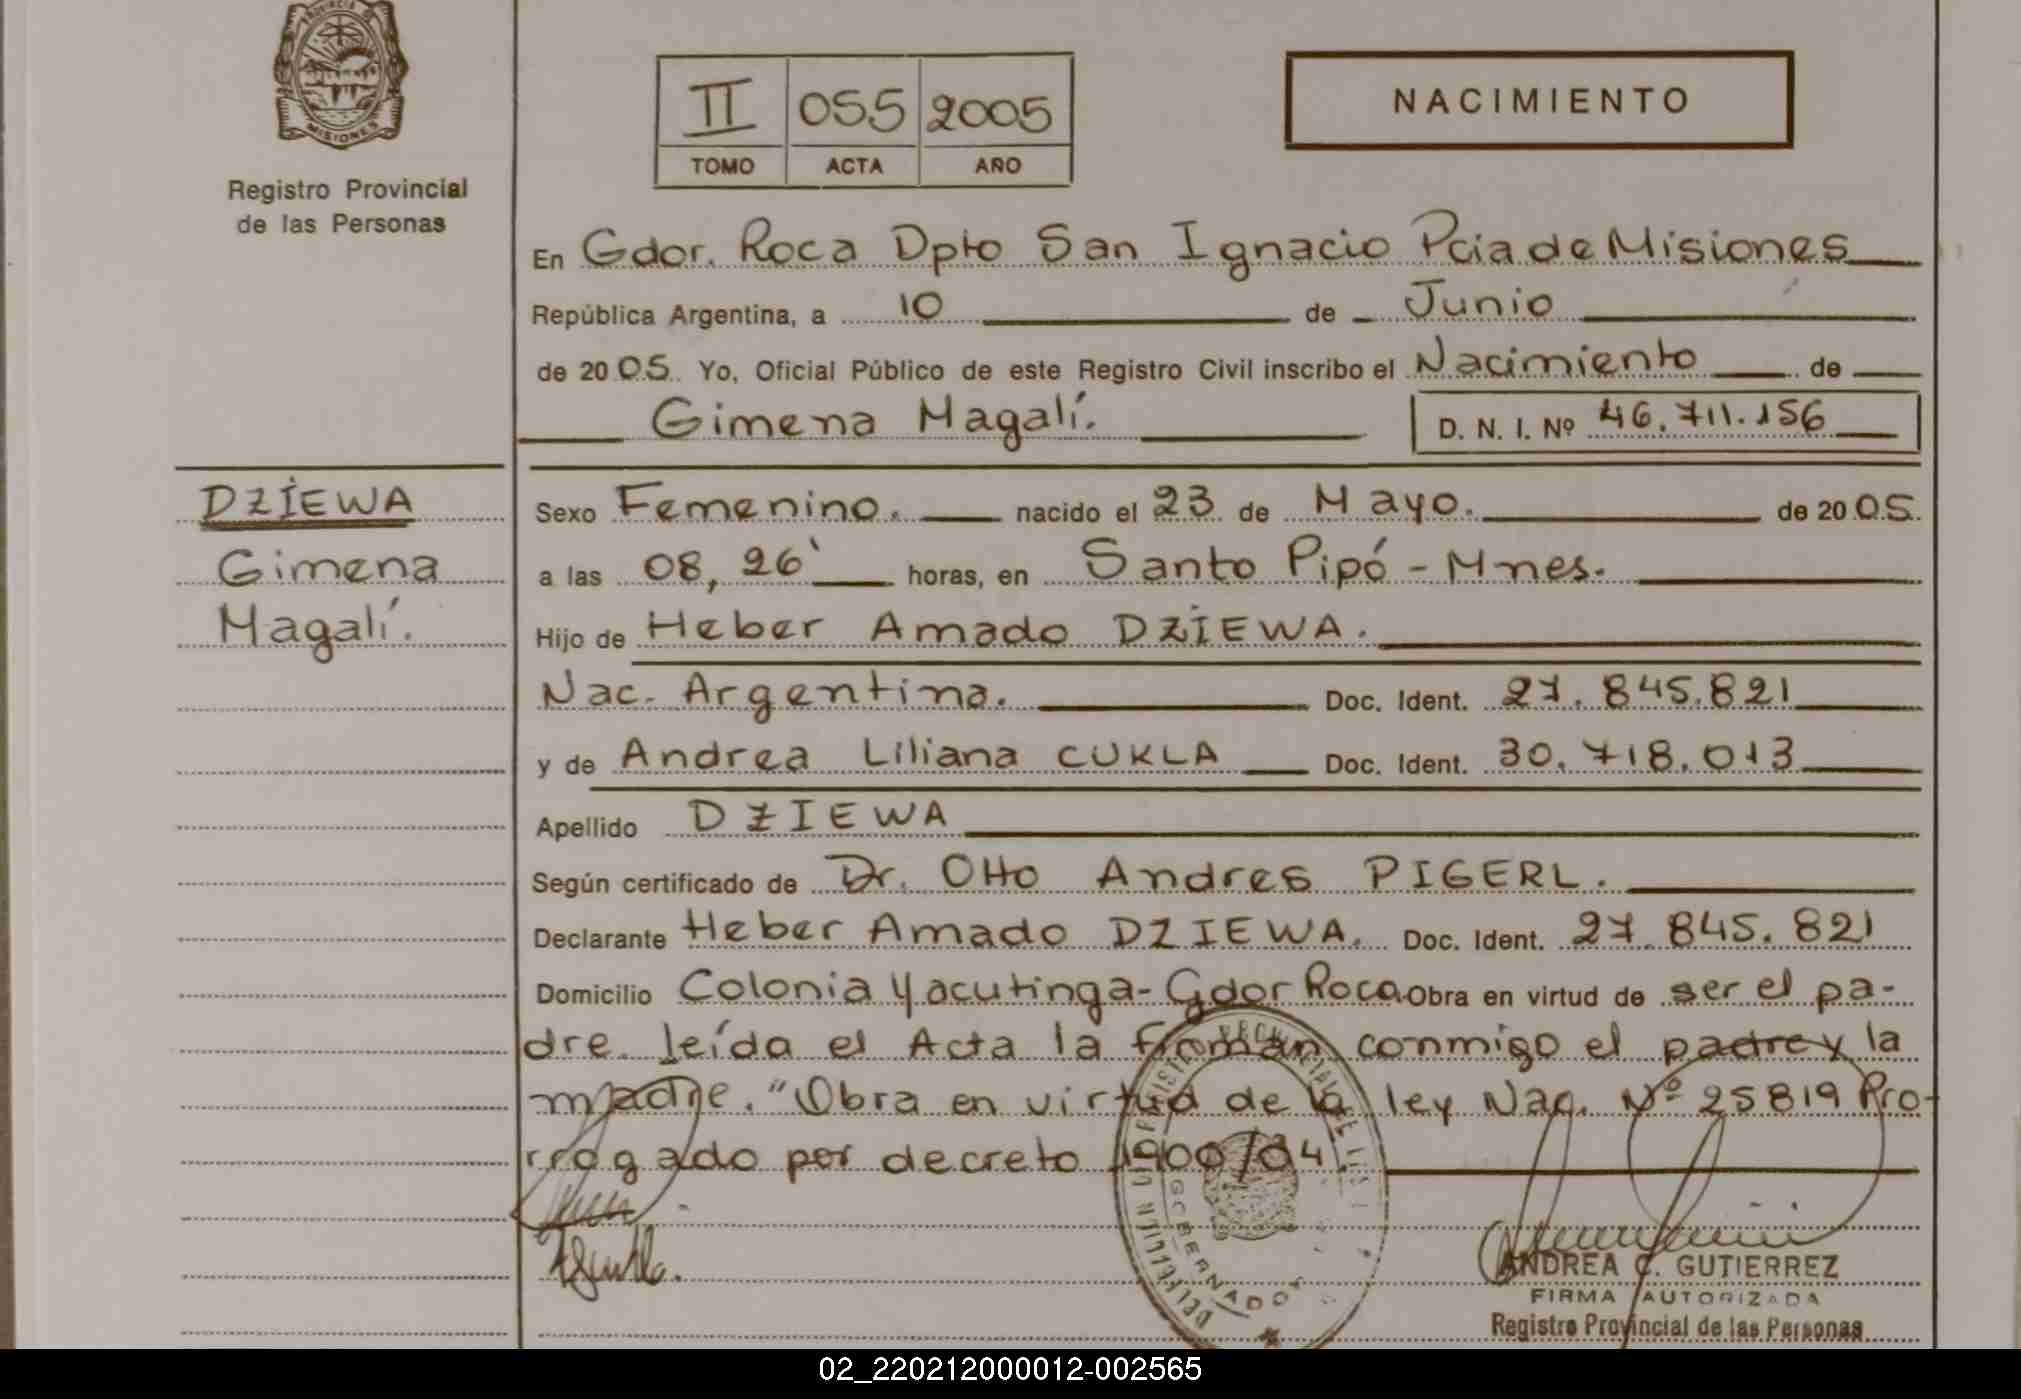 PROVINCIA DE
MISIONES
Registro Provincial
de las Personas
II 055 2005
TOMO ACTA AÑO
NACIMIENTO
En Gdor. Roca Dpto San Ignacio Pcia de Misiones
República Argentina, a 10 de Junio
de 2005. Yo, Oficial Público de este Registro Civil inscribo el Nacimiento de
Gimena Magalí. D. N. I. Nº 46.711.156
DZIEWA
Gimena
Magalí.
Sexo Femenino. nacido el 23 de Mayo. de 2005.
a las 08,26' horas, en Santo Pipó - Mnes.
Hijo de Heber Amado DZIEWA.
Nac. Argentina. Doc. Ident. 27.845.821
y de Andrea Liliana CUKLA Doc. Ident. 30.718.013
Apellido DZIEWA
Según certificado de Dr. Otto Andres PIGERL.
Declarante Heber Amado DZIEWA. Doc. Ident. 27.845.821
Domicilio Colonia Yacutinga - Gdor Roca. Obra en virtud de ser el pa-
dre. leída el Acta la firman conmigo el padre y la
madre. "Obra en virtud de la ley Nac. Nº 25819 Pro-
rrogado por decreto 1900/04.
ANDREA C. GUTIERREZ
FIRMA AUTORIZADA
Registro Provincial de las Personas
02_220212000012-002565